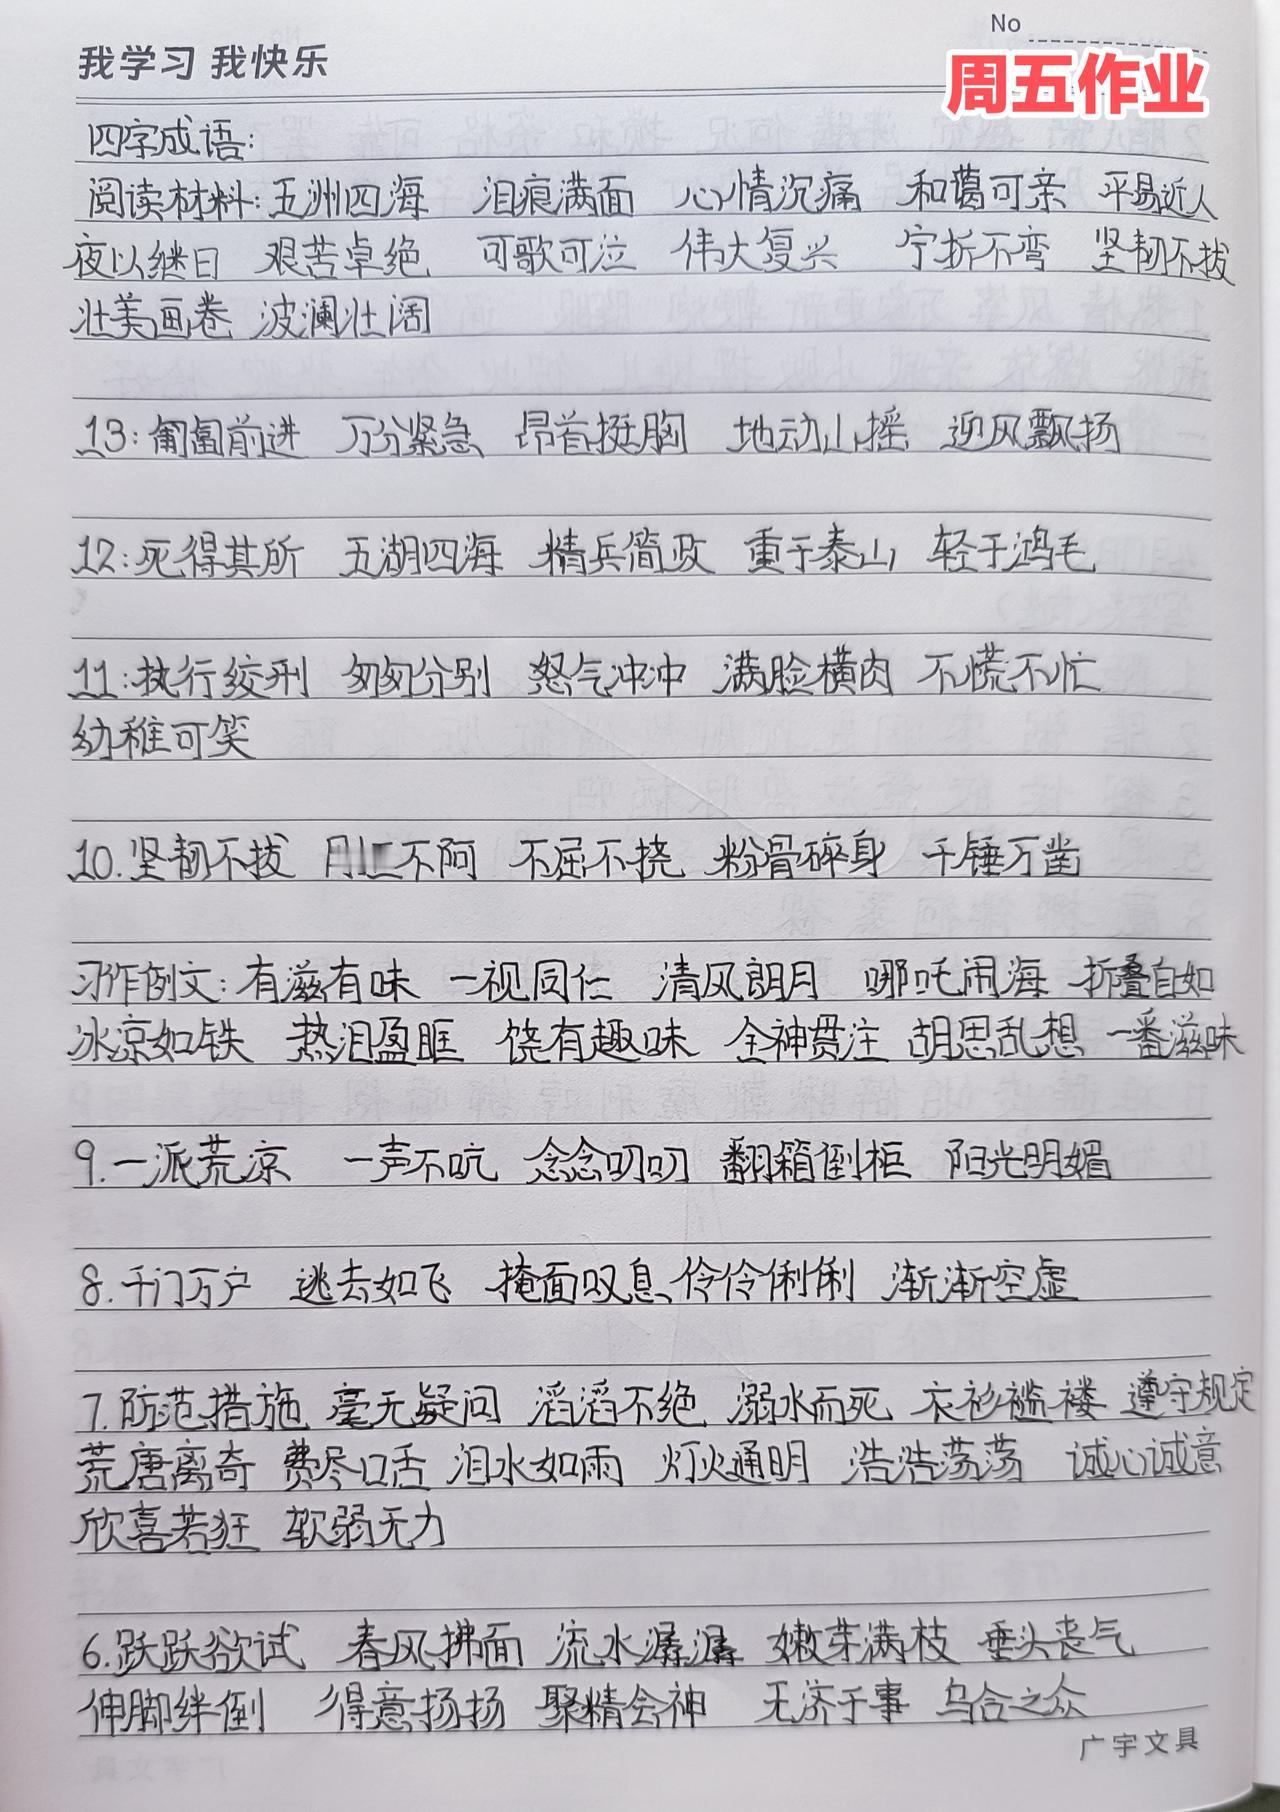 No
我学习 我快乐
周五作业
四字成语:
阅读材料:五洲四海 泪痕满面 心情沉痛 和蔼可亲 平易近人
夜以继日 艰苦卓绝 可歌可泣 伟大复兴 宁折不弯 坚韧不拔
壮美画卷 波澜壮阔
13:匍匐前进 万分紧急 昂首挺胸 地动山摇 迎风飘扬
12:死得其所 五湖四海 精兵简政 重于泰山 轻于鸿毛
11:执行绞刑 匆匆分别 怒气冲冲 满脸横肉 不慌不忙
幼稚可笑
10.坚韧不拔 刚正不阿 不屈不挠 粉骨碎身 千锤万凿
习作例文:有滋有味 一视同仁 清风朗月 哪吒闹海 折叠自如
冰凉如铁 热泪盈眶 饶有趣味 全神贯注 胡思乱想 一番滋味
9.一派荒凉 一声不吭 念念叨叨 翻箱倒柜 阳光明媚
8.千门万户 逃去如飞 掩面叹息 伶伶俐俐 渐渐空虚
7.防范措施 毫无疑问 滔滔不绝 溺水而死 衣衫褴褛 遵守规定
荒唐离奇 费尽口舌 泪水如雨 灯火通明 浩浩荡荡 诚心诚意
欣喜若狂 软弱无力
6.跃跃欲试 春风拂面 流水潺潺 嫩芽满枝 垂头丧气
伸脚绊倒 得意扬扬 聚精会神 无济于事 乌合之众
广宇文具